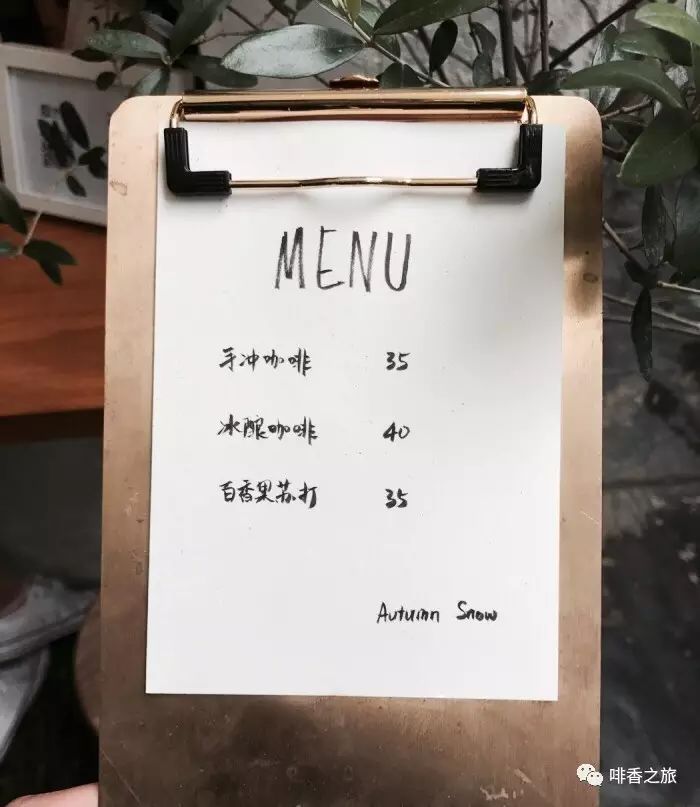 MENU
手冲咖啡 35
冰酿咖啡 40
百香果苏打 35
Autumn Snow
啡香之旅